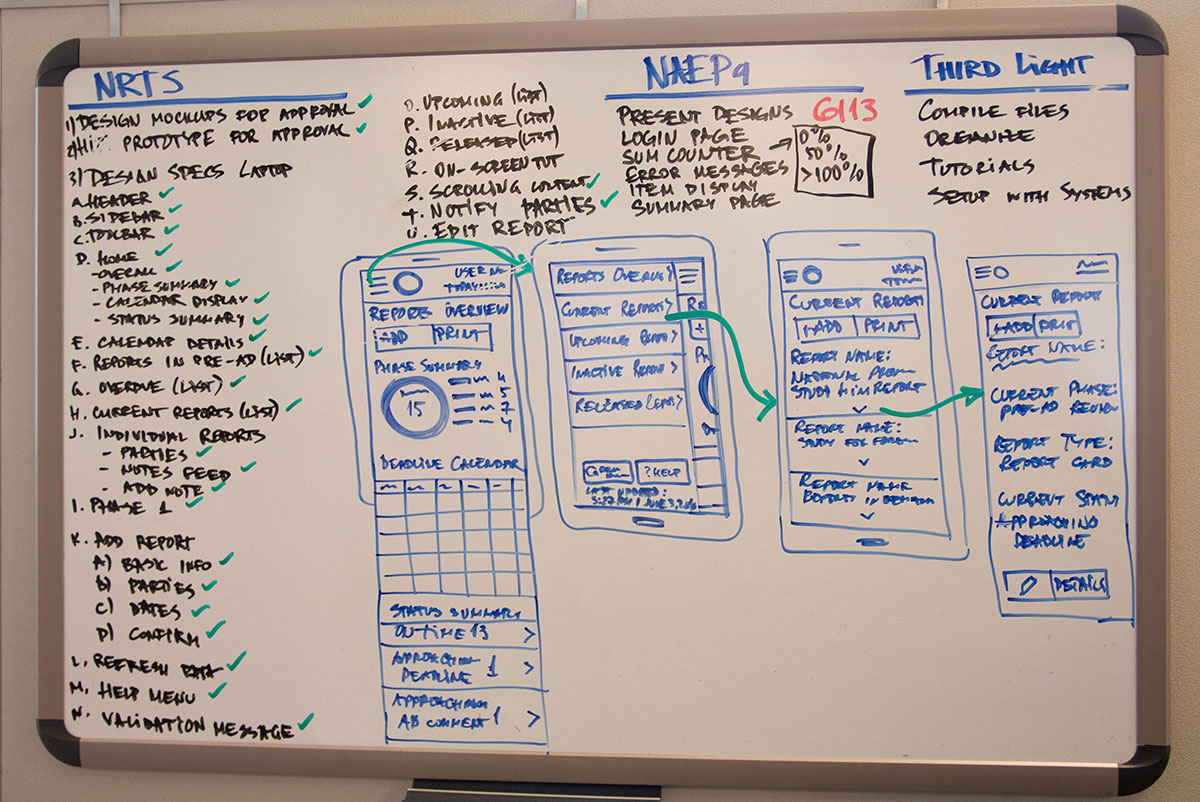 NRTS
1) DESIGN MOCKUPS FOR APPROVAL ✓
2) HI PROTOTYPE FOR APPROVAL ✓
3) DESIGN SPECS LAPTOP
A. HEADER ✓
B. SIDEBAR ✓
C. TOOLBAR ✓
D. HOME ✓
- OVERALL ✓
- PHASE SUMMARY ✓
- CALENDAR DISPLAY ✓
- STATUS SUMMARY ✓
E. CALENDAR DETAILS ✓
F. REPORTS IN PRE-AD (LIST) ✓
G. OVERDUE (LIST) ✓
H. CURRENT REPORTS (LIST) ✓
J. INDIVIDUAL REPORTS
- PARTIES ✓
- NOTES FEED ✓
- ADD NOTE ✓
I. PHASE 1 ✓
K. ADD REPORT
A) BASIC INFO ✓
B) PARTIES ✓
C) DATES ✓
D) CONFIRM ✓
L. REFRESH DATA ✓
M. HELP MENU ✓
N. VALIDATION MESSAGE ✓
O. UPCOMING (LIST)
P. INACTIVE (LIST)
Q. RELEASED (LIST)
R. ON-SCREEN TUT
S. SCROLLING CONTENT ✓
T. NOTIFY PARTIES ✓
U. EDIT REPORT
NAEPq
PRESENT DESIGNS 6/13
LOGIN PAGE
SUM COUNTER →
ERROR MESSAGES
ITEM DISPLAY
SUMMARY PAGE
0%
50%
>100%
THIRD LIGHT
COMPILE FILES
ORGANIZE
TUTORIALS
SETUP WITH SYSTEMS
USER
REPORTS OVERVIEW
+ADD PRINT
PHASE SUMMARY
15
4
5
7
4
DEADLINE CALENDAR
STATUS SUMMARY
ON TIME 13 >
APPROACHING
DEADLINE 1 >
APPROACHING
AB COMMENT 1 >
REPORTS >
CURRENT REPORTS >
UPCOMING >
INACTIVE REPORT >
RELEASED >
? HELP
LAST UPDATED:
RE
+
PH
CURRENT REPORT
+ADD PRINT
REPORT NAME:
NATIONAL
STUDY REPORT
REPORT NAME:
STUDY FOR
REPORT NAME
REPORT IN
CURRENT REPORT
+ADD PRINT
REPORT NAME:
CURRENT PHASE:
PRE-AD REVIEW
REPORT TYPE:
REPORT CARD
CURRENT STATUS
APPROACHING
DEADLINE
DETAILS